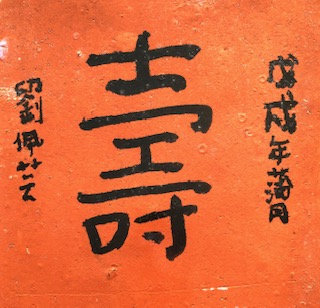 戊戌年蒲月
壽
劉佩芸